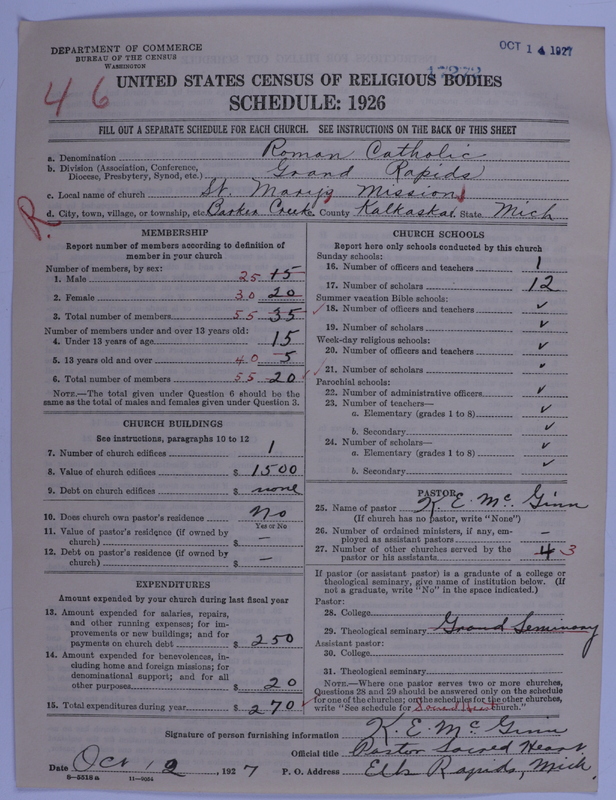 DEPARTMENT OF COMMERCE
BUREAU OF THE CENSUS
WASHINGTON
OCT 14 1927
46
UNITED STATES CENSUS OF RELIGIOUS BODIES
SCHEDULE: 1926
FILL OUT A SEPARATE SCHEDULE FOR EACH CHURCH. SEE INSTRUCTIONS ON THE BACK OF THIS SHEET
a. Denomination Roman Catholic
b. Division (Association, Conference, Diocese, Presbytery, Synod, etc.) Grand Rapids
c. Local name of church St. Mary's Mission
d. City, town, village, or township, etc. Barker Creek County Kalkaska State Mich
R.
MEMBERSHIP
Report number of members according to definition of
member in your church
Number of members, by sex:
1. Male 25 15
2. Female 30 20
3. Total number of members 55 35
Number of members under and over 13 years old:
4. Under 13 years of age 15
5. 13 years old and over 40 5
6. Total number of members 55 20
NOTE.—The total given under Question 6 should be
same as the total of males and females given under Question 3.
CHURCH BUILDINGS
See instructions, paragraphs 10 to 12
7. Number of church edifices 1
8. Value of church edifices $ 1500
9. Debt on church edifices $ none
10. Does church own pastor's residence No
Yes or No
11. Value of pastor's residence (if owned by
church) $ —
12. Debt on pastor's residence (if owned by
church) $ —
EXPENDITURES
Amount expended by your church during last fiscal year
13. Amount expended for salaries, repairs,
and other running expenses; for im-
provements or new buildings; and for
payments on church debt $ 250
14. Amount expended for benevolences, in-
cluding home and foreign missions; for
denominational support; and for all
other purposes $ 20
15. Total expenditures during year $ 270
CHURCH SCHOOLS
Report here only schools conducted by this church
Sunday schools:
16. Number of officers and teachers 1
17. Number of scholars 12
Summer vacation Bible schools:
18. Number of officers and teachers ✓
19. Number of scholars ✓
Week-day religious schools:
20. Number of officers and teachers ✓
21. Number of scholars ✓
Parochial schools:
22. Number of administrative officers ✓
23. Number of teachers—
a. Elementary (grades 1 to 8) ✓
b. Secondary ✓
24. Number of scholars—
a. Elementary (grades 1 to 8) ✓
b. Secondary ✓
PASTOR
25. Name of pastor K. E. Mc Ginn
(If church has no pastor, write "None")
26. Number of ordained ministers, if any, em-
ployed as assistant pastors —
27. Number of other churches served by the
pastor or his assistants 4 3
If pastor (or assistant pastor) is a graduate of a college or
theological seminary, give name of institution below. (If
not a graduate, write "No" in the space indicated.)
Pastor:
28. College
29. Theological seminary Grand Seminary
Assistant pastor:
30. College
31. Theological seminary
NOTE.—Where one pastor serves two or more churches,
Questions 28 and 29 should be answered only on the schedule
for one of the churches; on the schedules for the other churches,
write "See schedule for Sacred Heart church."
Signature of person furnishing information K. E. Mc Ginn
Official title Pastor Sacred Heart
Date Oct 12, 1927 P. O. Address Elk Rapids, Mich.
8-5518a 11-9054